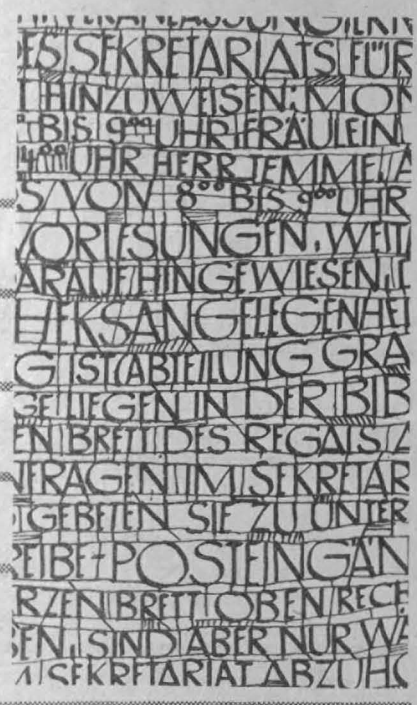 VERANLASSUNG
ES SEKRETARIATS FÜR
T HINZUWEISEN: MON
BIS 9⁰⁰ UHR FRÄULEIN
UHR HERR TEMME, A
S/VON 8⁰⁰ BIS 9⁰⁰ UHR
VORLESUNGEN, WEIT
ARAUF HINGEWIESEN, D
HEKSANGELEGENHEI
G IST (ABTEILUNG GRA
GE LIEGEN IN DER BIB
EN BRETT DES REGALS Z
NFRAGEN IM SEKRETAR
T GEBETEN SIE ZU UNTER
EIBE- POSTEINGÄN
RZEN BRETT OBEN RECH
EN, SIND ABER NUR WÄ
M SEKRETARIAT ABZUHO